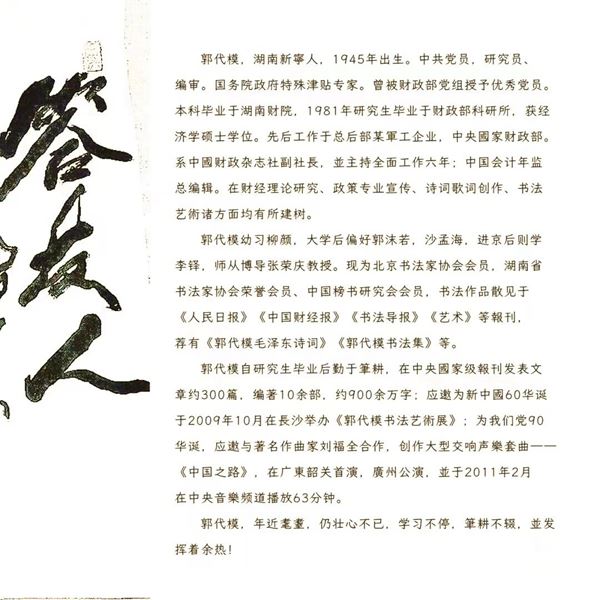 答友人
郭代模，湖南新寧人，1945年出生。中共党员，研究员、
编审。国务院政府特殊津贴专家。曾被财政部党组授予优秀党员。
本科毕业于湖南财院，1981年研究生毕业于财政部科研所，获经
济学硕士学位。先后工作于总后部某軍工企业，中央國家财政部。
系中國财政杂志社副社長，並主持全面工作六年；中国会计年监
总编辑。在财经理论研究、政策专业宣传、诗词歌词创作、书法
艺術诸方面均有所建树。
郭代模幼习柳颜，大学后偏好郭沫若，沙孟海，进京后则学
李铎，师从博导张荣庆教授。现为北京书法家协会会员，湖南省
书法家协会荣誉会员、中国榜书研究会会员，书法作品散见于
《人民日报》《中国财经报》《书法导报》《艺术》等報刊，
荐有《郭代模毛泽东诗词》《郭代模书法集》等。
郭代模自研究生毕业后勤于筆耕，在中央國家级報刊发表文
章约300篇，编著10余部，约900余万字；应邀为新中國60华诞
于2009年10月在長沙举办《郭代模书法艺術展》；为我们党90
华诞，应邀与著名作曲家刘福全合作，创作大型交响声樂套曲——
《中国之路》，在广東韶关首演，廣州公演，並于2011年2月
在中央音樂频道播放63分钟。
郭代模，年近耄耋，仍壮心不已，学习不停，筆耕不辍，並发
挥着余热！